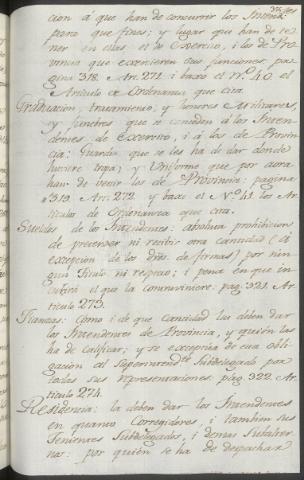 cion á que han de concurrir los Intend.
pero que fines; y lugar que han de te-
ner en ellas el de Exercito, i los de Pro-
vincia que exercieren sus funciones, pa-
gina 318. Art. 271. i baxo el Nº 40 el
Articulo de Ordenanza que cita.
Graduacion, tratamiento, y honores Militares
y funebres que se conceden á los Inten-
dentes de Exercito, i á los de Provin-
cia: Guardia que se les ha de dar donde
huviere tropa; y Uniforme que por aora
han de vestir los de Provincia: pagina
319. Art. 272. y baxo el Nº 41 los Ar-
ticulos de Ordenanza que cita.
Sueldos de los Intendentes: absoluta prohibicion
de precensar ni recibir otra cantidad (á
excepcion de los dros. de firmas) por nin-
gun titulo ni respeto; i pena en que in-
curirá el que la conmviniere: pag. 321. Ar-
ticulo 273.
Fianzas: Como i de que cantidad las deben dar
los Intendentes de Provincia, y quién las
ha de calificar; y se exceptúa de esa obli-
gación al Superintend.te Subdelegado por
todas sus representaciones: pag. 322. Ar-
ticulo 274.
Residencia: la deben dar los Intendentes
en quanto Corregidores, i tambien sus
Tenientes Subdelegados, i demas Subalter-
nos: por quién se ha de despachar